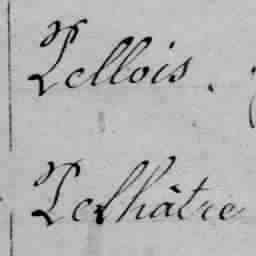 Pellois.
Pelhâtre